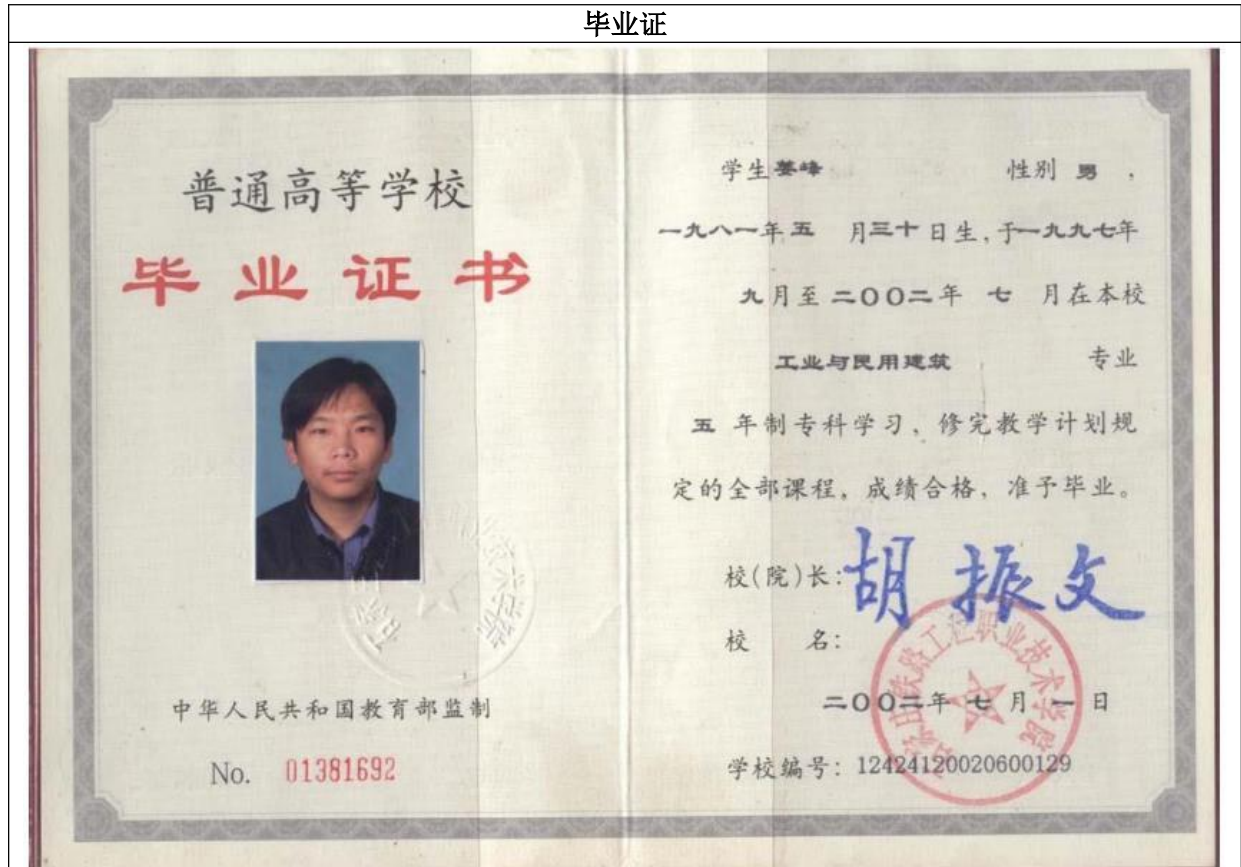 毕业证
普通高等学校
毕业证书
中华人民共和国教育部监制
No. 01381692
学生 峰 性别 男 ,
一九八一年五 月三十日生,于一九九七年
九月至二〇〇二年 七 月在本校
工业与民用建筑 专业
五 年制专科学习、修完教学计划规
定的全部课程,成绩合格,准予毕业。
校(院)长:胡振文
校 名:
铁路工程职业技术学院
二〇〇二年 七 月 一 日
学校编号:12424120020600129